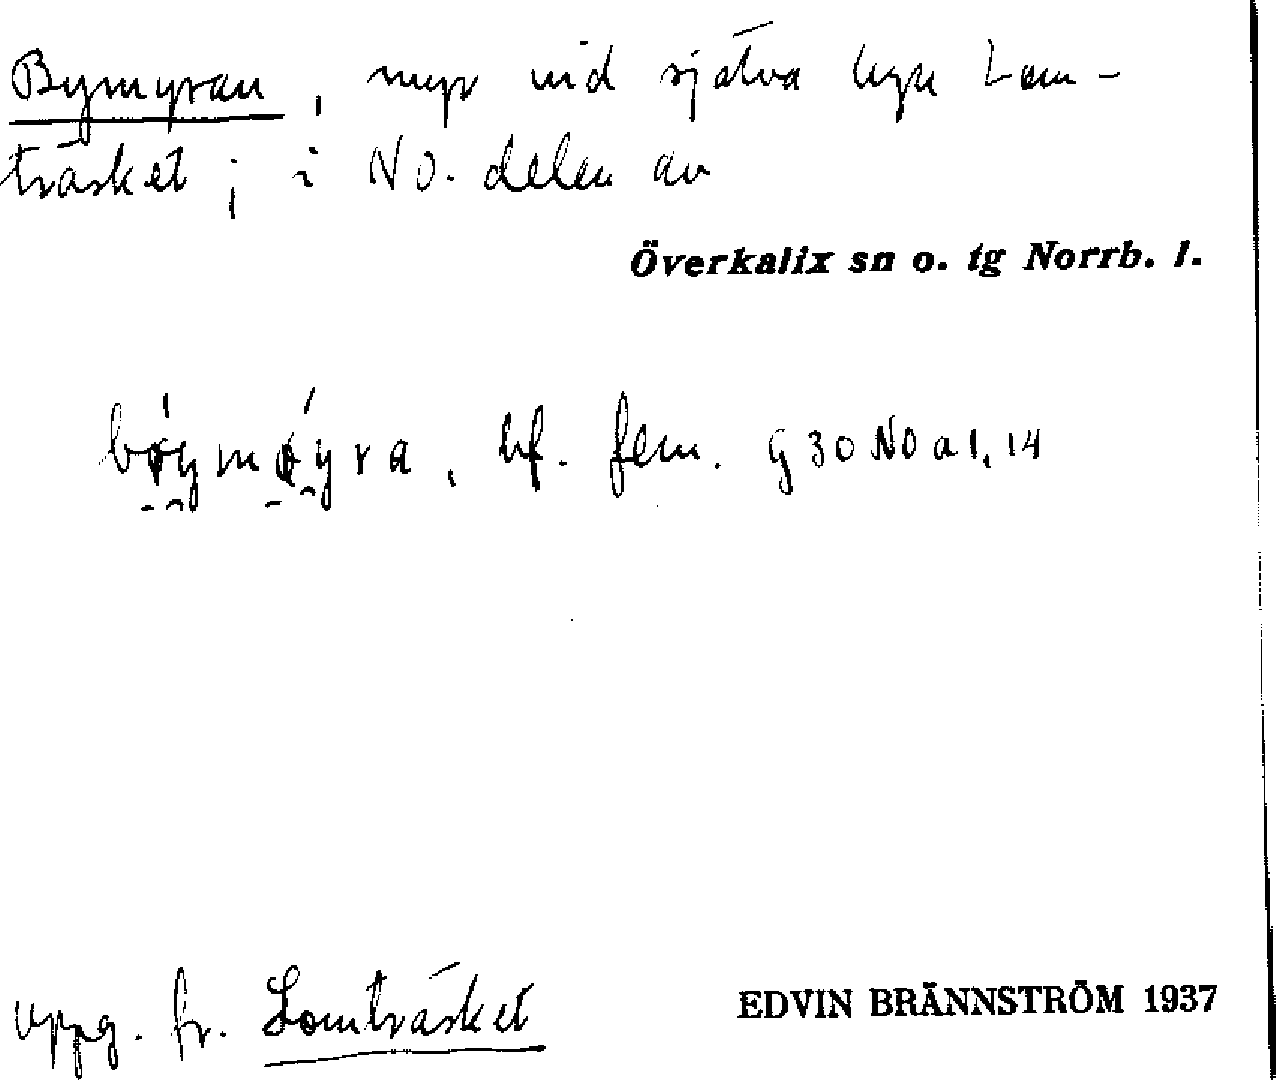 Bymyran, myr vid själva byn Lom-
träsket; i NO. delen av
Överkalix sn o. tg Norrb. l.
bøymøyra, bf. fem. g 30 NO a 1, 14
uppg. fr. Lomträsket
EDVIN BRÄNNSTRÖM 1937